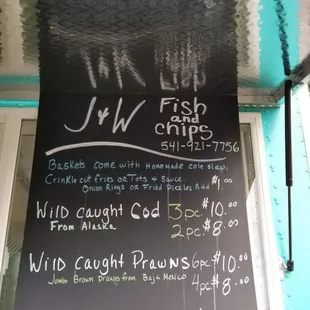 J & W Fish
and
chips
541-921-7756
Baskets come with homemade cole slaw,
Crinkle cut fries or Tots & Sauce.
Onion Rings or Fried Pickles Add $1.00
Wild caught Cod 3pc. $10.00
From Alaska 2pc. $8.00
Wild Caught Prawns 6pc $10.00
Jumbo Brown Prawns from Baja Mexico 4pc $8.00